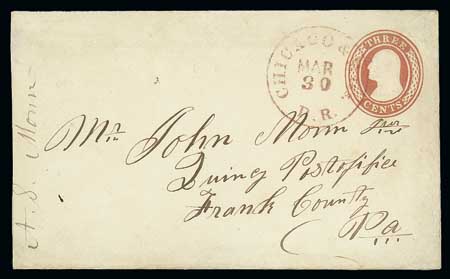 CHICAGO &
MAR
30
R.R.
THREE
CENTS
A. S. Monn
Mr John Monn Snr
Quincy Postofice
Frank County
Pa